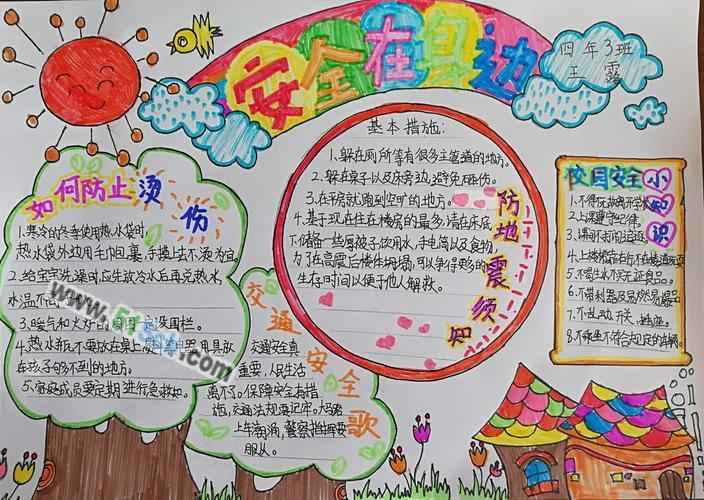 安全在身边
四年3班
王露
如何防止烫伤
1.寒冷的冬季使用热水袋时,
热水袋外边用毛巾包裹,手摸上去不烫为宜。
2.给宝宝洗澡时,应先放冷水后再兑热水,
水温不
3.暖气和火炉的周围 设围栏。
4.热水瓶不要放在桌上 用具放
在孩子够不到的地方。
5.家庭成员要定期进行急救
交通安全歌
交通安全真
重要,人民生活
离不了。保障安全有措
施,交通法规要记牢。
上车
服从。
基本措施:
1.躲在厕所等有很多主管道的地方。
2.躲在桌子以及床旁边,避免压伤。
3.在平院就跑到空旷的地方。
4.基于现在住在楼房的最多,请在床底
下储备一些厚被子饮用水,手电筒以及食物,
为了在高震后楼体坍塌,可以争得更多的
生存时间以便于他人解救。
防地震须知
校园安全小知识
1.不得玩
2.上课遵守纪律。
3.课间不
4.上楼梯
5.不喝生水不
6.不带利器及易燃易爆品
7.不乱动开关、
8.不乘坐不符合规定的车辆。